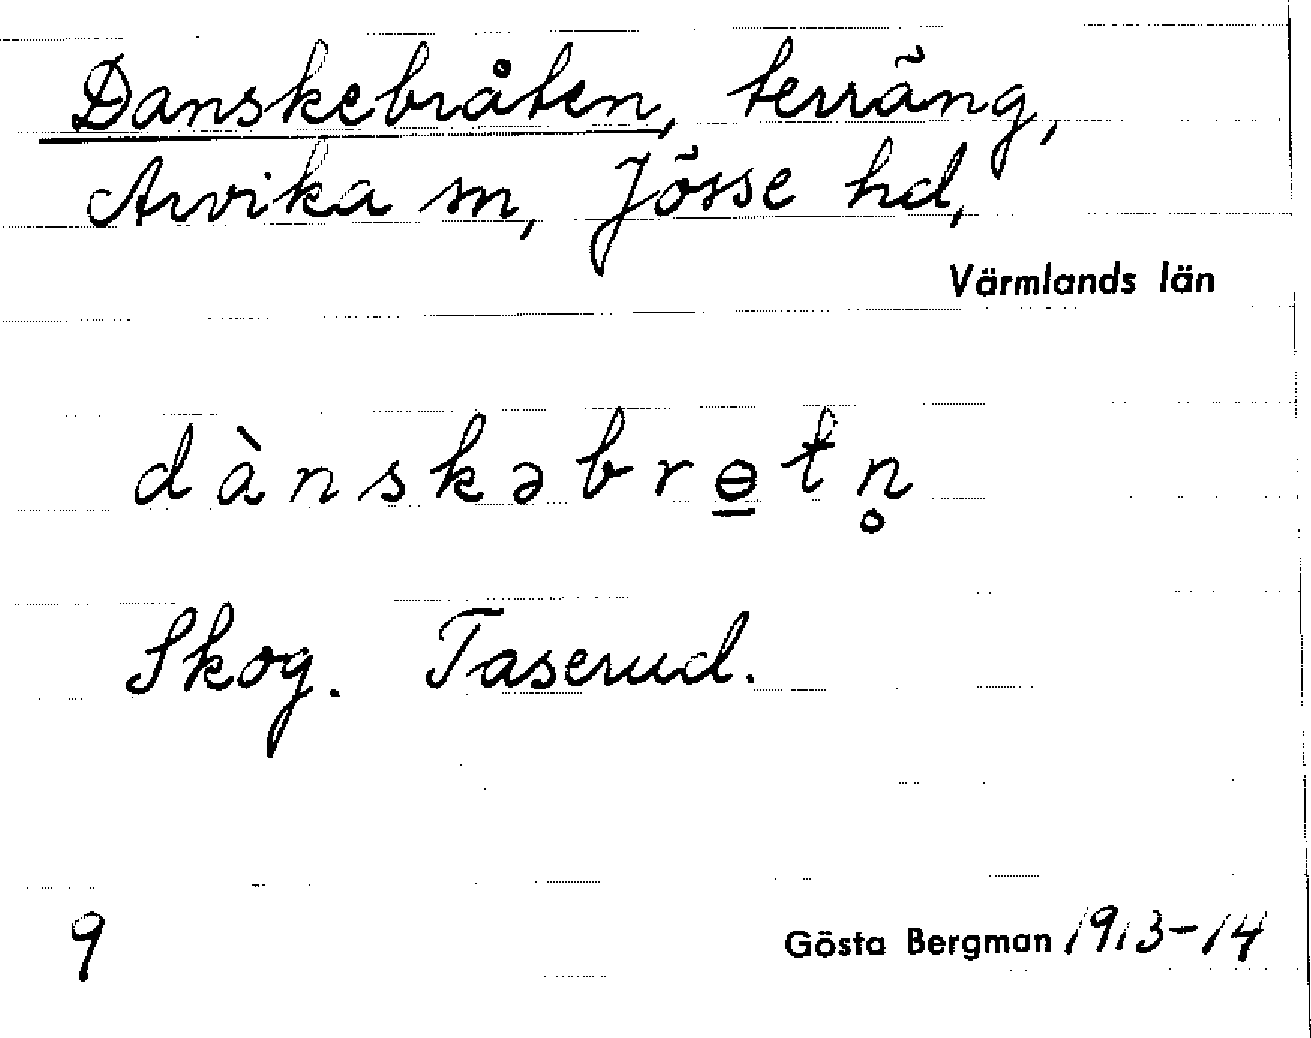 Danskebråten, terräng,
Arvika sn, Jösse hd,
Värmlands län
dànskəbrɵ̲tn̥
Skog. Taserud.
9
Gösta Bergman 1913-14